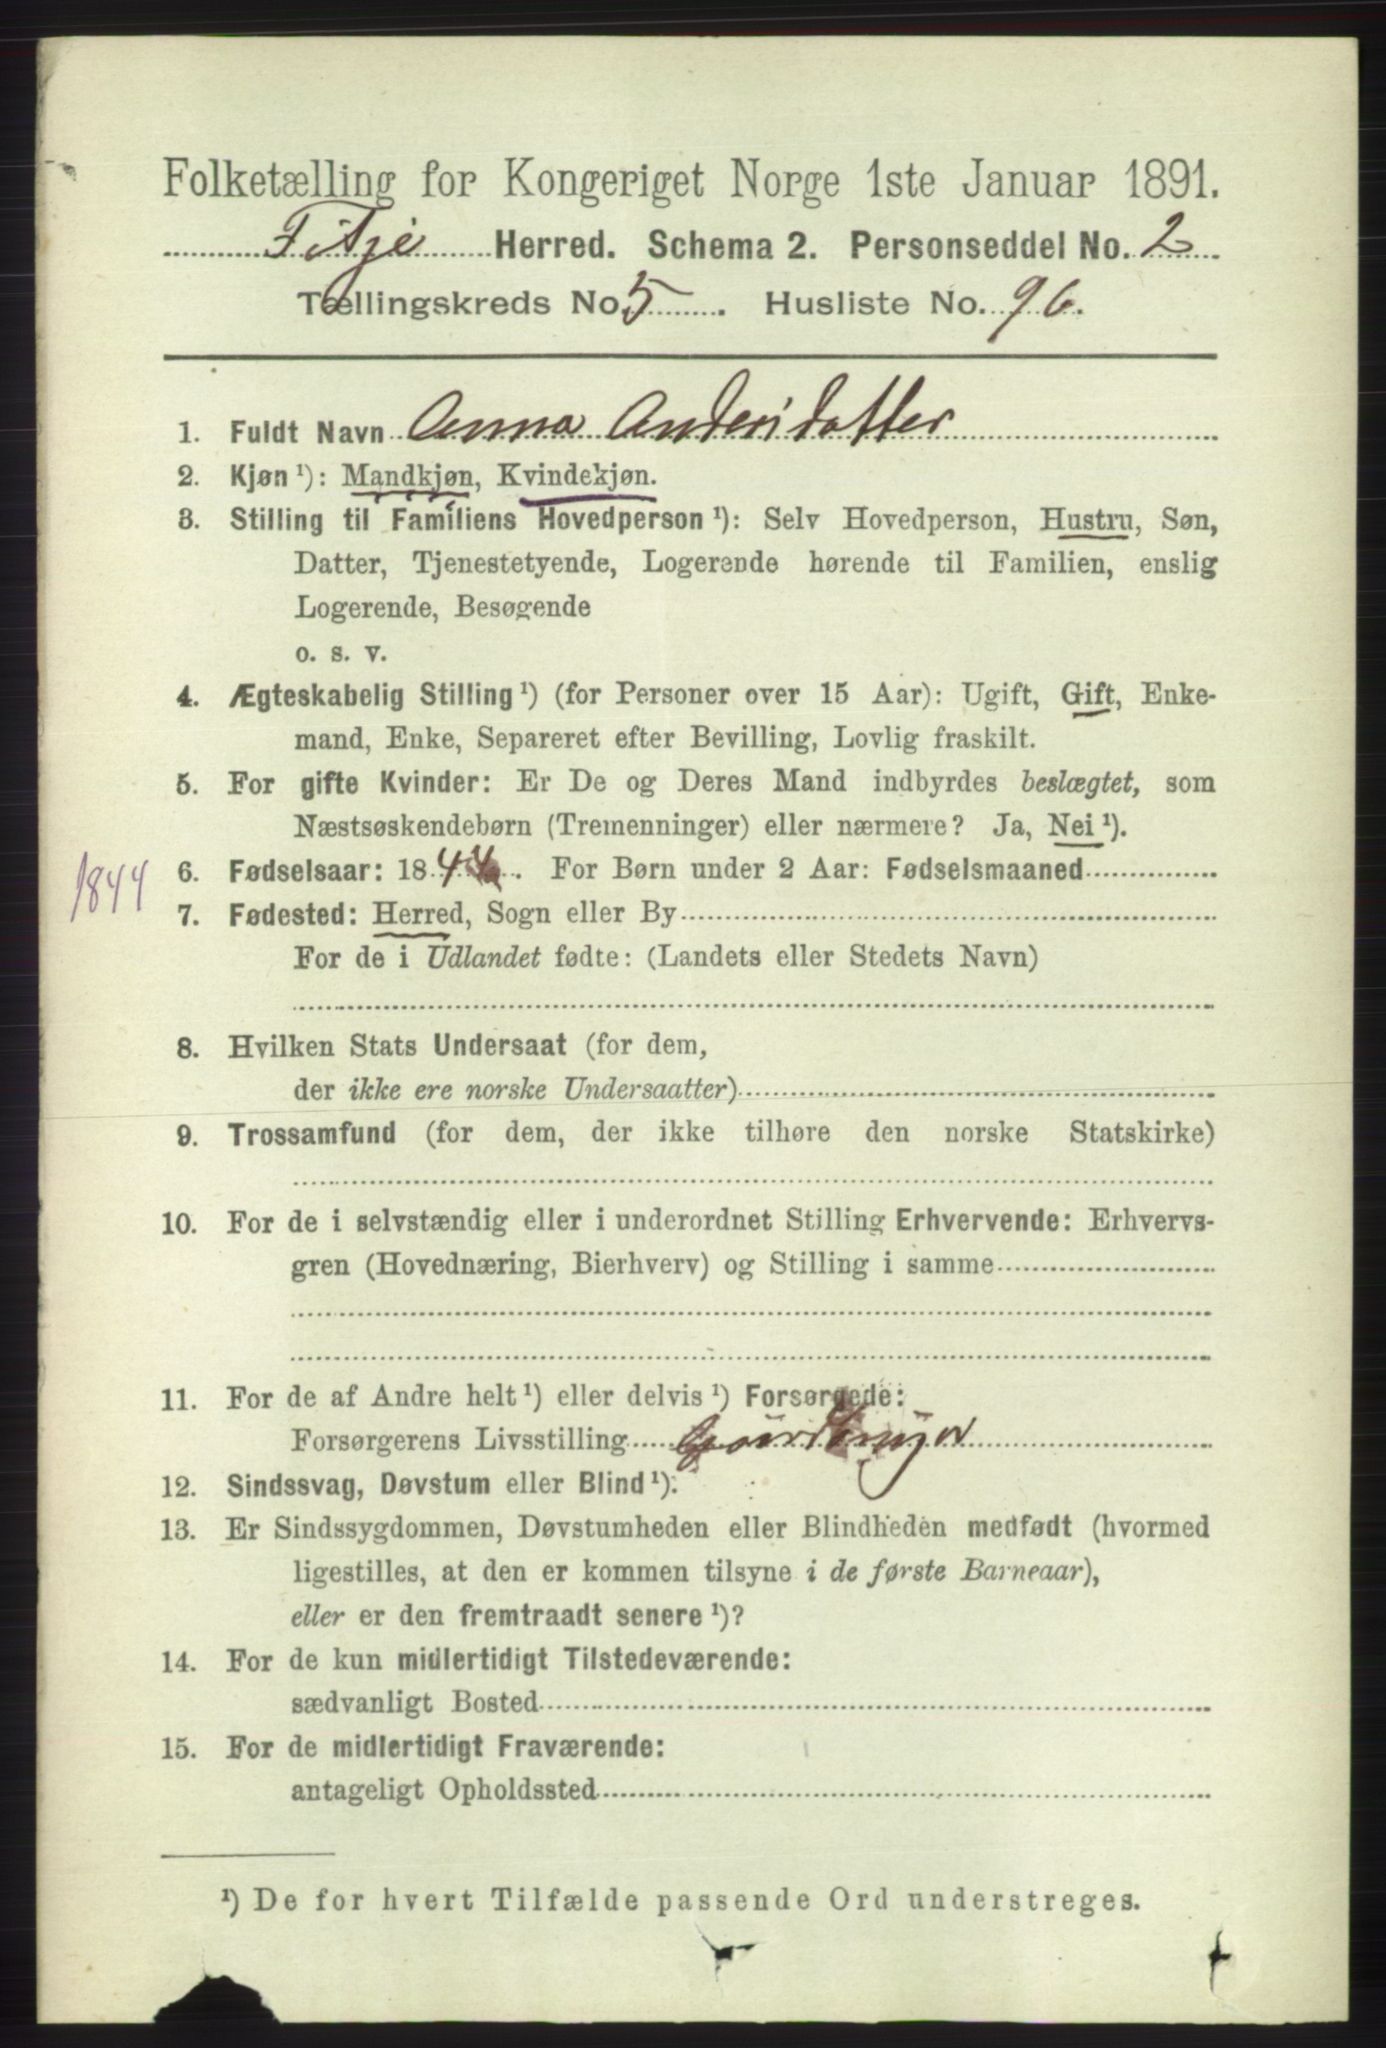 Folketælling for Kongeriget Norge 1ste Januar 1891.
Fitje Herred. Schema 2. Personseddel No. 2
Tællingskreds No. 5. Husliste No. 96.
1. Fuldt Navn Anna Andersdatter
2. Kjøn ¹): Mandkjøn, Kvindekjøn.
3. Stilling til Familiens Hovedperson ¹): Selv Hovedperson, Hustru, Søn,
Datter, Tjenestetyende, Logerende hørende til Familien, enslig
Logerende, Besøgende
o. s. v.
4. Ægteskabelig Stilling ¹) (for Personer over 15 Aar): Ugift, Gift, Enke-
mand, Enke, Separeret efter Bevilling, Lovlig fraskilt.
5. For gifte Kvinder: Er De og Deres Mand indbyrdes beslægtet, som
Næstsøskendebørn (Tremenninger) eller nærmere? Ja, Nei ¹).
1844
6. Fødselsaar: 1844. For Børn under 2 Aar: Fødselsmaaned
7. Fødested: Herred, Sogn eller By
For de i Udlandet fødte: (Landets eller Stedets Navn)
8. Hvilken Stats Undersaat (for dem,
der ikke ere norske Undersaatter)
9. Trossamfund (for dem, der ikke tilhøre den norske Statskirke)
10. For de i selvstændig eller i underordnet Stilling Erhvervende: Erhvervs-
gren (Hovednæring, Bierhverv) og Stilling i samme
11. For de af Andre helt ¹) eller delvis ¹) Forsørgede:
Forsørgerens Livsstilling
12. Sindssvag, Døvstum eller Blind ¹).
13. Er Sindssygdommen, Døvstumheden eller Blindheden medfødt (hvormed
ligestilles, at den er kommen tilsyne i de første Barneaar),
eller er den fremtraadt senere ¹)?
14. For de kun midlertidigt Tilstedeværende:
sædvanligt Bosted
15. For de midlertidigt Fraværende:
antageligt Opholdssted
¹) De for hvert Tilfælde passende Ord understreges.